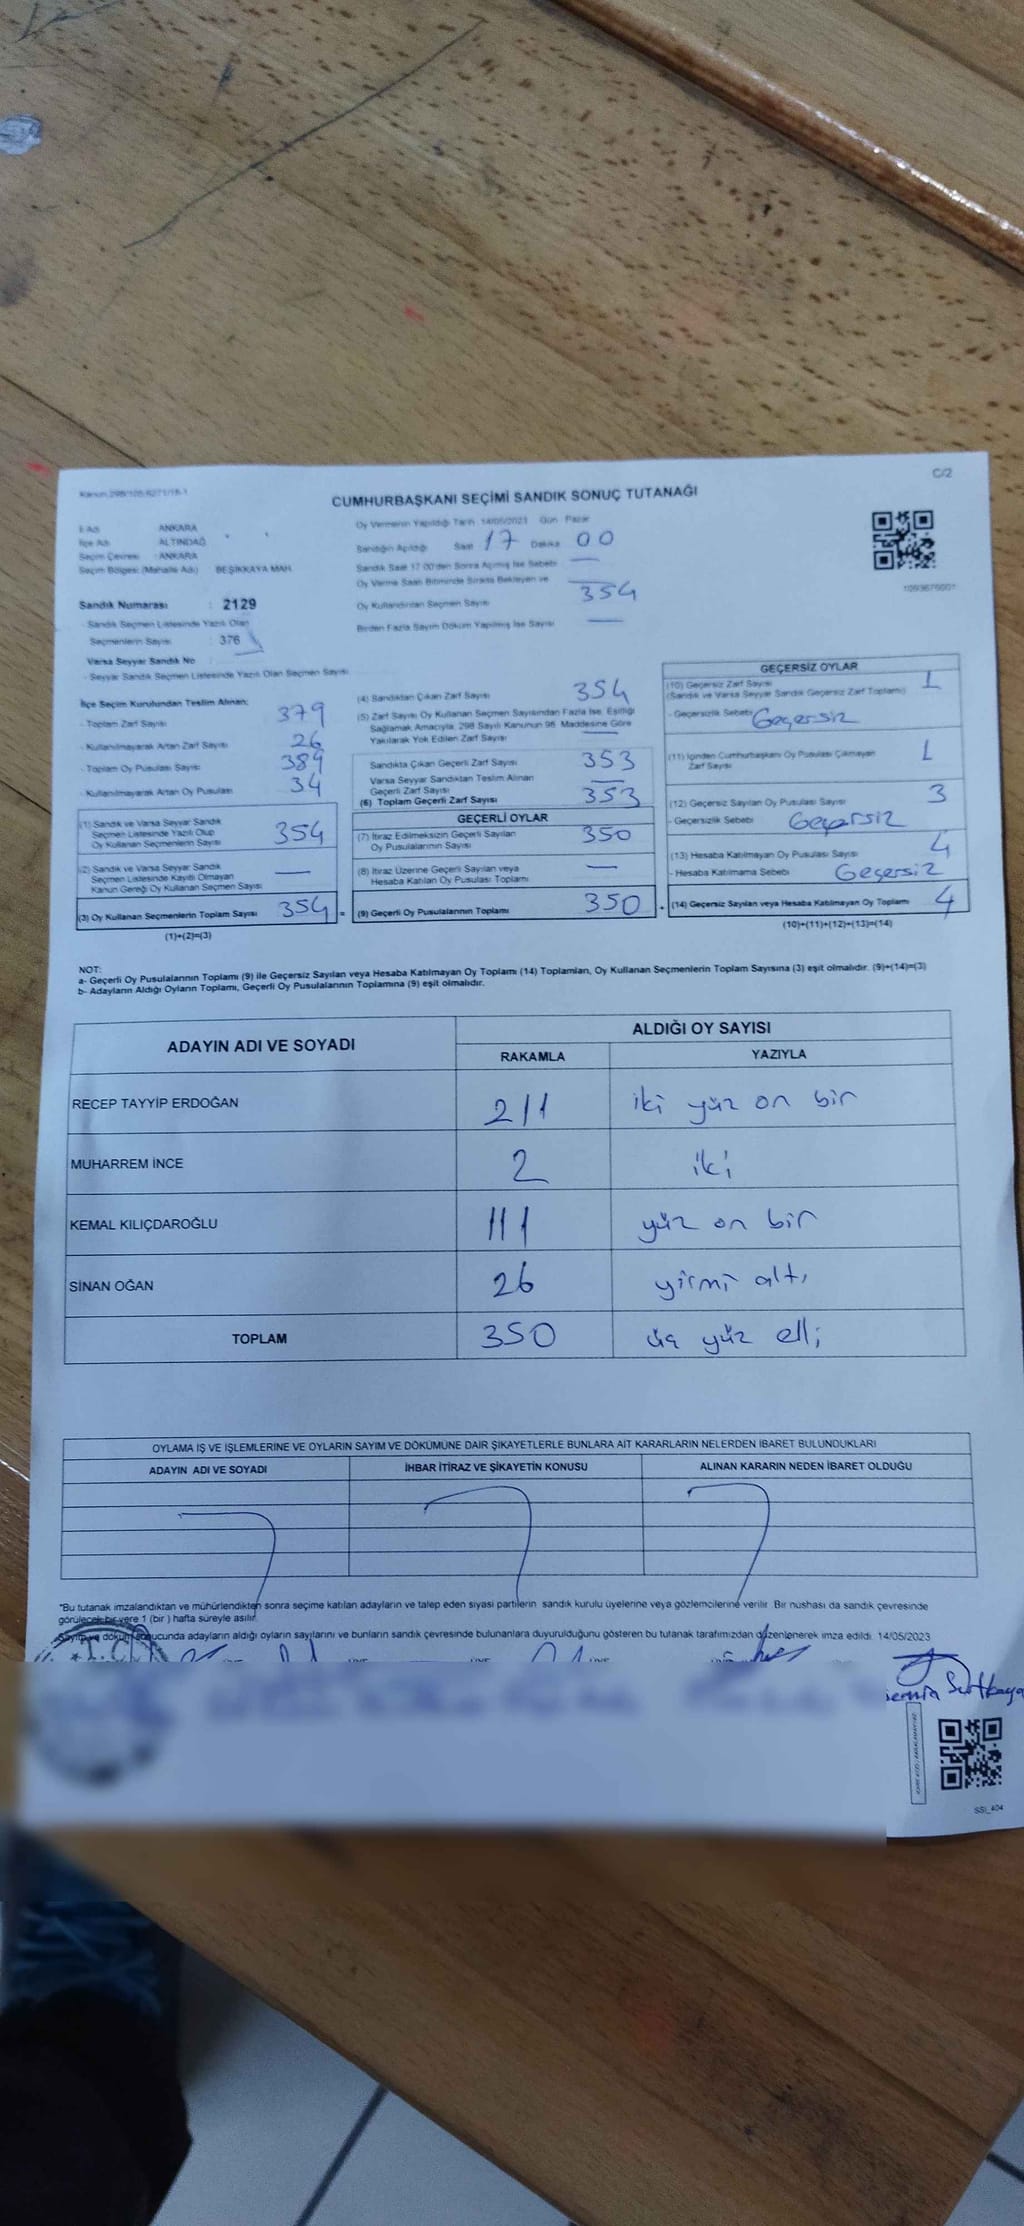 Kanun:298/105/6271/16-1
C/2
CUMHURBAŞKANI SEÇİMİ SANDIK SONUÇ TUTANAĞI
İl Adı ANKARA
İlçe Adı ALTINDAĞ
Seçim Çevresi : ANKARA
Seçim Bölgesi: (Mahalle Adı) BEŞİKKAYA MAH.
Sandık Numarası : 2129
- Sandık Seçmen Listesinde Yazılı Olan
Seçmenlerin Sayısı : 376
Varsa Seyyar Sandık No
- Seyyar Sandık Seçmen Listesinde Yazılı Olan Seçmen Sayısı
Oy Vermenin Yapıldığı Tarih 14/05/2023 Gün Pazar
Sandığın Açıldığı Saat 17 Dakika 00
Sandık Saat 17:00'den Sonra Açılmış İse Sebebi —
Oy Verme Saati Bitiminde Sırada Bekleyen ve —
Oy Kullandırılan Seçmen Sayısı 354
Birden Fazla Sayım Döküm Yapılmış İse Sayısı —
İlçe Seçim Kurulundan Teslim Alınan:
- Toplam Zarf Sayısı 379
- Kullanılmayarak Artan Zarf Sayısı 26
- Toplam Oy Pusulası Sayısı 384
- Kullanılmayarak Artan Oy Pusulası 34
(1) Sandık ve Varsa Seyyar Sandık
Seçmen Listesinde Yazılı Olup
Oy Kullanan Seçmenlerin Sayısı 354
(2) Sandık ve Varsa Seyyar Sandık
Seçmen Listesinde Kayıtlı Olmayan
Kanun Gereği Oy Kullanan Seçmen Sayısı —
(3) Oy Kullanan Seçmenlerin Toplam Sayısı 354 =
(1)+(2)=(3)
(4) Sandıktan Çıkan Zarf Sayısı 354
(5) Zarf Sayısı Oy Kullanan Seçmen Sayısından Fazla İse, Eşitliği
Sağlamak Amacıyla, 298 Sayılı Kanunun 98. Maddesine Göre
Yakılarak Yok Edilen Zarf Sayısı —
Sandıkta Çıkan Geçerli Zarf Sayısı 353
Varsa Seyyar Sandıktan Teslim Alınan
Geçerli Zarf Sayısı —
(6) Toplam Geçerli Zarf Sayısı 353
GEÇERLİ OYLAR
(7) İtiraz Edilmeksizin Geçerli Sayılan
Oy Pusulalarının Sayısı 350
(8) İtiraz Üzerine Geçerli Sayılan veya
Hesaba Katılan Oy Pusulası Toplamı —
(9) Geçerli Oy Pusulalarının Toplamı 350 +
GEÇERSİZ OYLAR
(10) Geçersiz Zarf Sayısı 1
(Sandık ve Varsa Seyyar Sandık Geçersiz Zarf Toplamı)
- Geçersizlik Sebebi Geçersiz
(11) İçinden Cumhurbaşkanı Oy Pusulası Çıkmayan
Zarf Sayısı 1
(12) Geçersiz Sayılan Oy Pusulası Sayısı 3
- Geçersizlik Sebebi Geçersiz
(13) Hesaba Katılmayan Oy Pusulası Sayısı 4
- Hesaba Katılmama Sebebi Geçersiz
(14) Geçersiz Sayılan veya Hesaba Katılmayan Oy Toplamı 4
(10)+(11)+(12)+(13)=(14)
NOT:
a- Geçerli Oy Pusulalarının Toplamı (9) ile Geçersiz Sayılan veya Hesaba Katılmayan Oy Toplamı (14) Toplamları, Oy Kullanan Seçmenlerin Toplam Sayısına (3) eşit olmalıdır. (9)+(14)=(3)
b- Adayların Aldığı Oyların Toplamı, Geçerli Oy Pusulalarının Toplamına (9) eşit olmalıdır.
ADAYIN ADI VE SOYADI
ALDIĞI OY SAYISI
RAKAMLA YAZIYLA
RECEP TAYYİP ERDOĞAN 211 iki yüz on bir
MUHARREM İNCE 2 iki
KEMAL KILIÇDAROĞLU 111 yüz on bir
SİNAN OĞAN 26 yirmi altı
TOPLAM 350 üç yüz elli
OYLAMA İŞ VE İŞLEMLERİNE VE OYLARIN SAYIM VE DÖKÜMÜNE DAİR ŞİKAYETLERLE BUNLARA AİT KARARLARIN NELERDEN İBARET BULUNDUKLARI
ADAYIN ADI VE SOYADI İHBAR İTİRAZ VE ŞİKAYETİN KONUSU ALINAN KARARIN NEDEN İBARET OLDUĞU
"Bu tutanak imzalandıktan ve mühürlendikten sonra seçime katılan adayların ve talep eden siyasi partilerin sandık kurulu üyelerine veya gözlemcilerine verilir. Bir nüshası da sandık çevresinde
görülecek bir yere 1 (bir ) hafta süreyle asılır.
Sayım ve döküm sonucunda adayların aldığı oyların sayılarını ve bunların sandık çevresinde bulunanlara duyurulduğunu gösteren bu tutanak tarafımızdan düzenlenerek imza edildi. 14/05/2023
T.C.
SSI_404